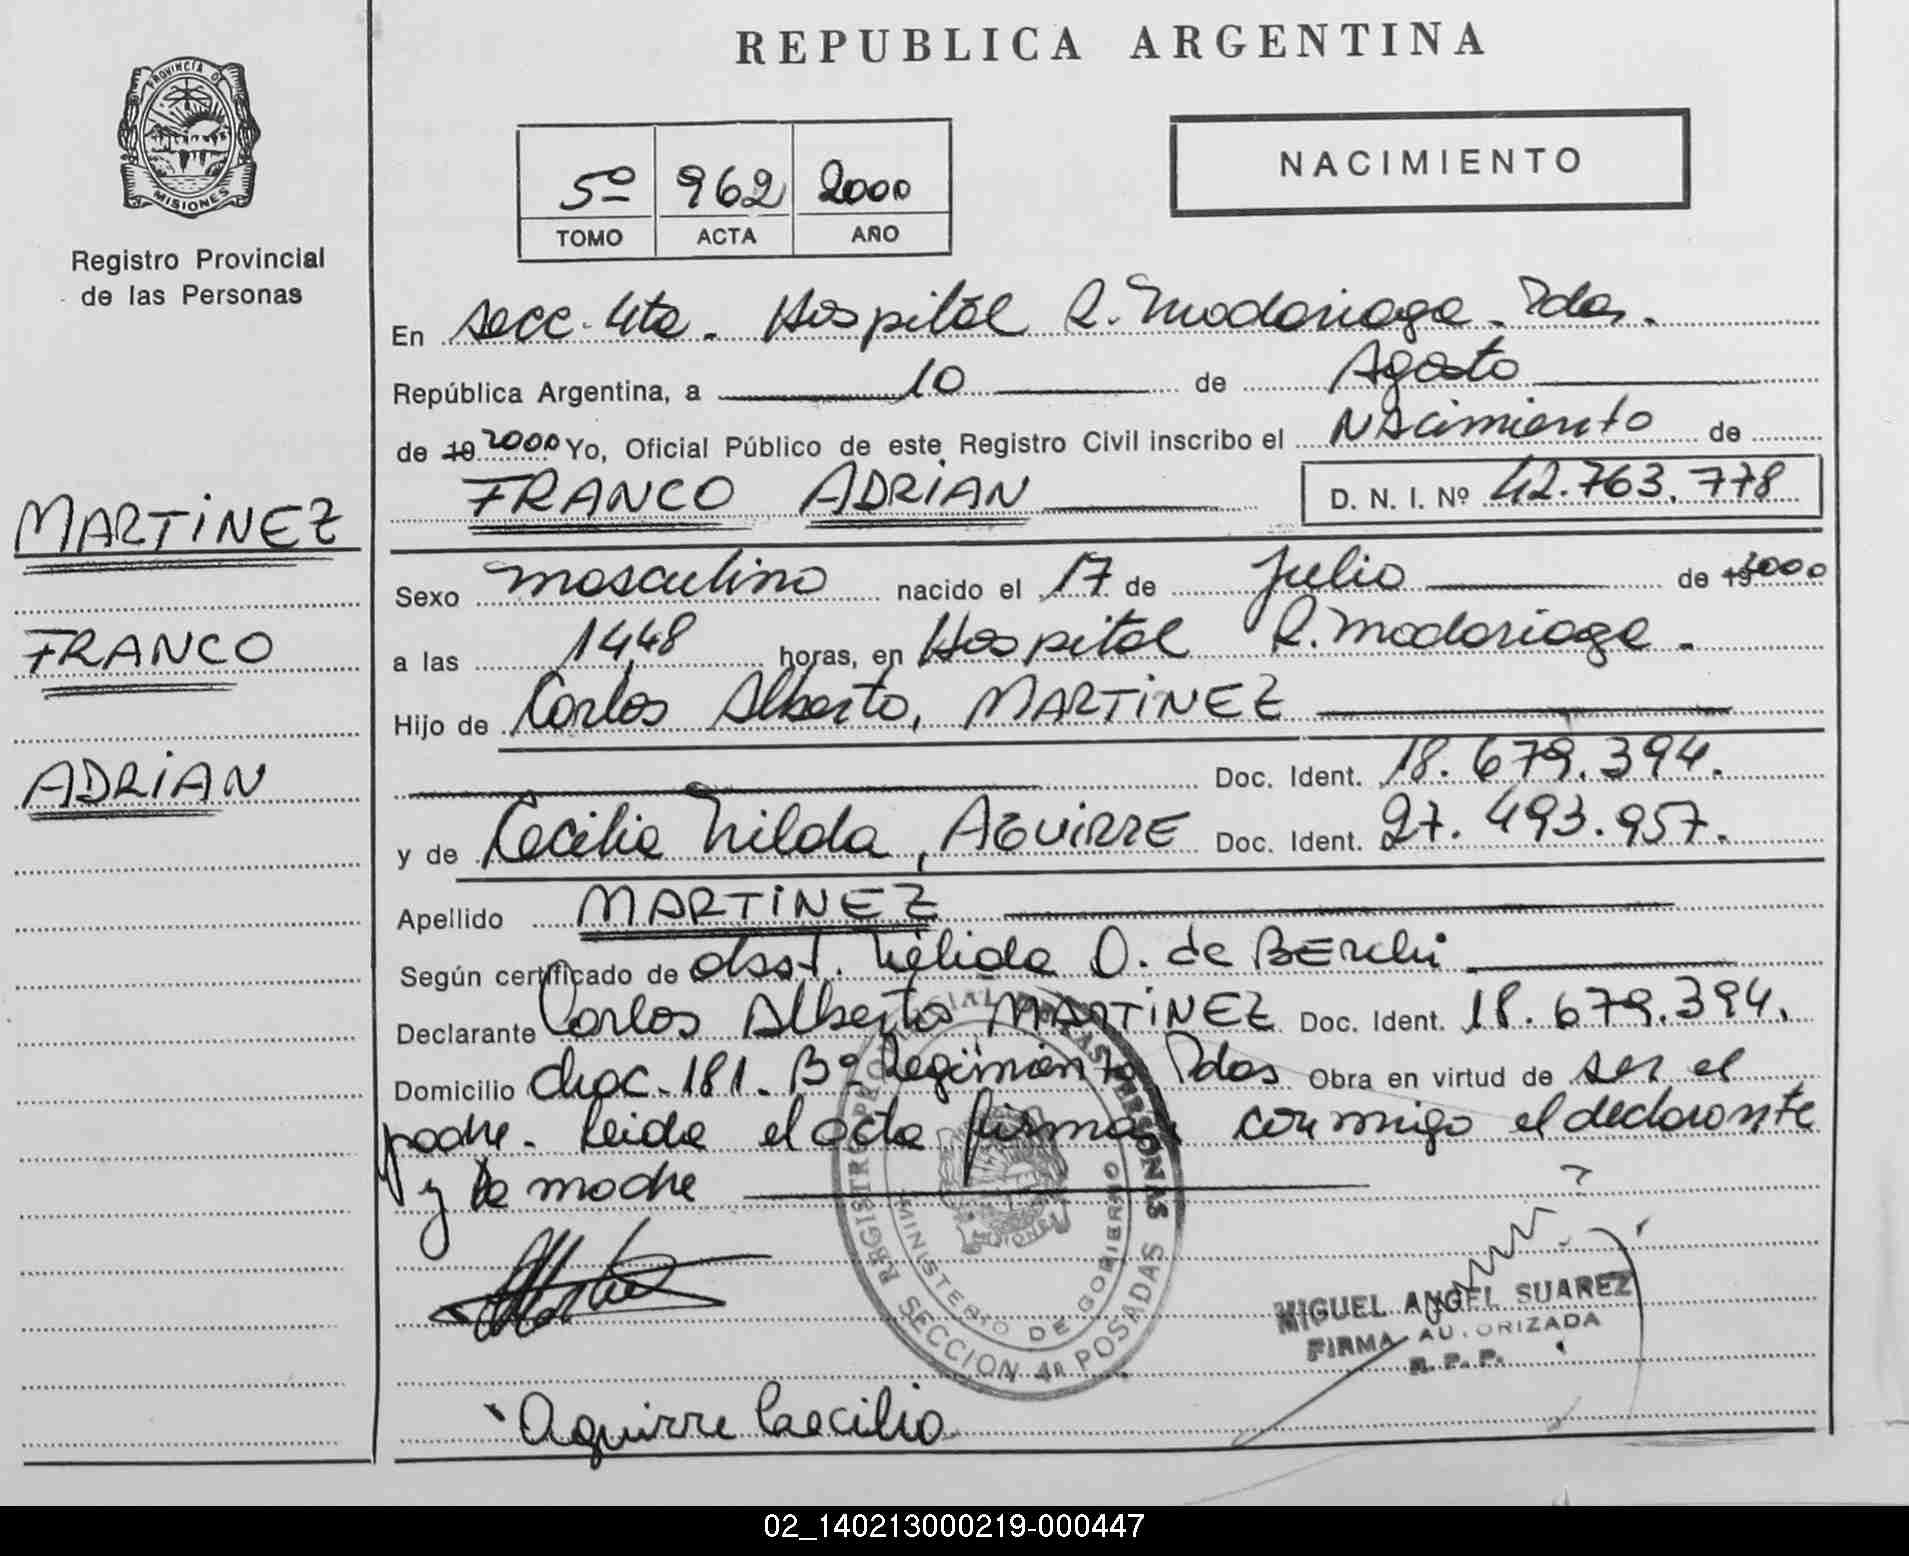 PROVINCIA DE
MISIONES
Registro Provincial
de las Personas
MARTINEZ
FRANCO
ADRIAN
REPUBLICA ARGENTINA
5º 962 2000
TOMO ACTA AÑO
NACIMIENTO
En Secc. 4ta. Hospital R. Madariaga. Pdas.
República Argentina, a 10 de Agosto
de 19 2000 Yo, Oficial Público de este Registro Civil inscribo el Nacimiento de
FRANCO ADRIAN D. N. I. Nº 42.763.778
Sexo masculino nacido el 17 de Julio de 19 2000
a las 1448 horas, en Hospital R. Madariaga.
Hijo de Carlos Alberto, MARTINEZ
Doc. Ident. 18.679.394.
y de Cecilia Nilda, AGUIRRE Doc. Ident. 27.493.957.
Apellido MARTINEZ
Según certificado de obst. Nélida O. de
Declarante Carlos Alberto MARTINEZ Doc. Ident. 18.679.394.
Domicilio chac. 181. Bº Regimiento Pdas Obra en virtud de ser el
padre. Leida el acta firman conmigo el declarante
y la madre
REGISTRO PROVINCIAL DE LAS PERSONAS
MINISTERIO DE GOBIERNO
SECCION 4ª POSADAS
MIGUEL ANGEL SUAREZ
FIRMA AUTORIZADA
R. P. P.
Aguirre Caecilia
02_140213000219-000447